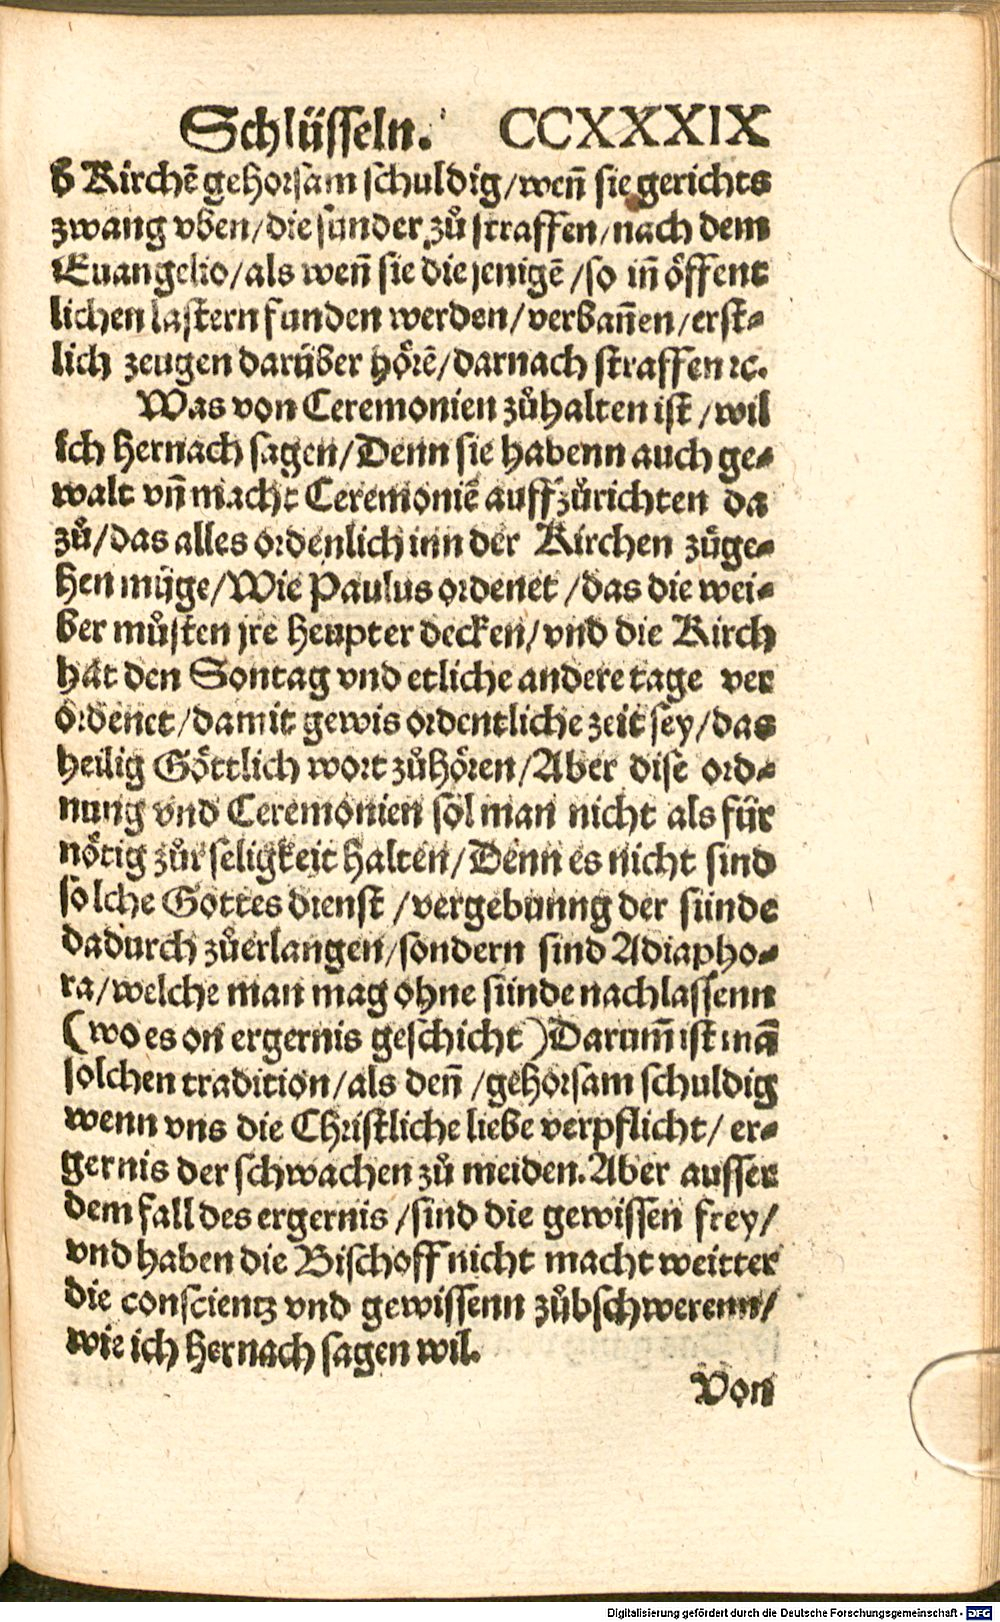 Schlüsseln. CCXXXIX
d̕ Kirchē gehorsam schuldig/wen̄ sie gerichts
zwang vben/die sunder zů straffen/nach dem
Euangelio/als wen̄ sie die jenigē/so in̄ öffent
lichen lastern funden werden/verban̄en/erst⸗
lich zeugen darüber hörē/darnach straffen ꝛc.
Was von Ceremonien zůhalten ist/wil
ich hernach sagen/Denn sie habenn auch ge⸗
walt vn̄ macht Ceremoniē auffzůrichten da
zů/das alles ordenlich inn der Kirchen zůge⸗
hen müge/Wie Paulus ordenet/das die wei⸗
ber můsten jre heupter decken/vnd die Kirch
hat den Sontag vnd etliche andere tage ver
ordenet/damit gewis ordentliche zeit sey/das
heilig Göttlich wort zůhören/Aber dise ord⸗
nung vnd Ceremonien sol man nicht als für
nötig zůr seligkeit halten/Denn es nicht sind
solche Gottes dienst/vergebunng der sünde
dadurch zůerlangen/sondern sind Adiapho⸗
ra/welche man mag ohne sünde nachlassenn
(wo es on ergernis geschicht)Darum̄ ist mā
solchen tradition/als den̄/gehorsam schuldig
wenn vns die Christliche liebe verpflicht/er⸗
gernis der schwachen zů meiden.Aber ausser
dem fall des ergernis/sind die gewissen frey/
vnd haben die Bischoff nicht macht weitter
die conscientz vnd gewissenn zůbschwerenn/
wie ich hernach sagen wil.
Von
Digitalisierung gefördert durch die Deutsche Forschungsgemeinschaft - DFG